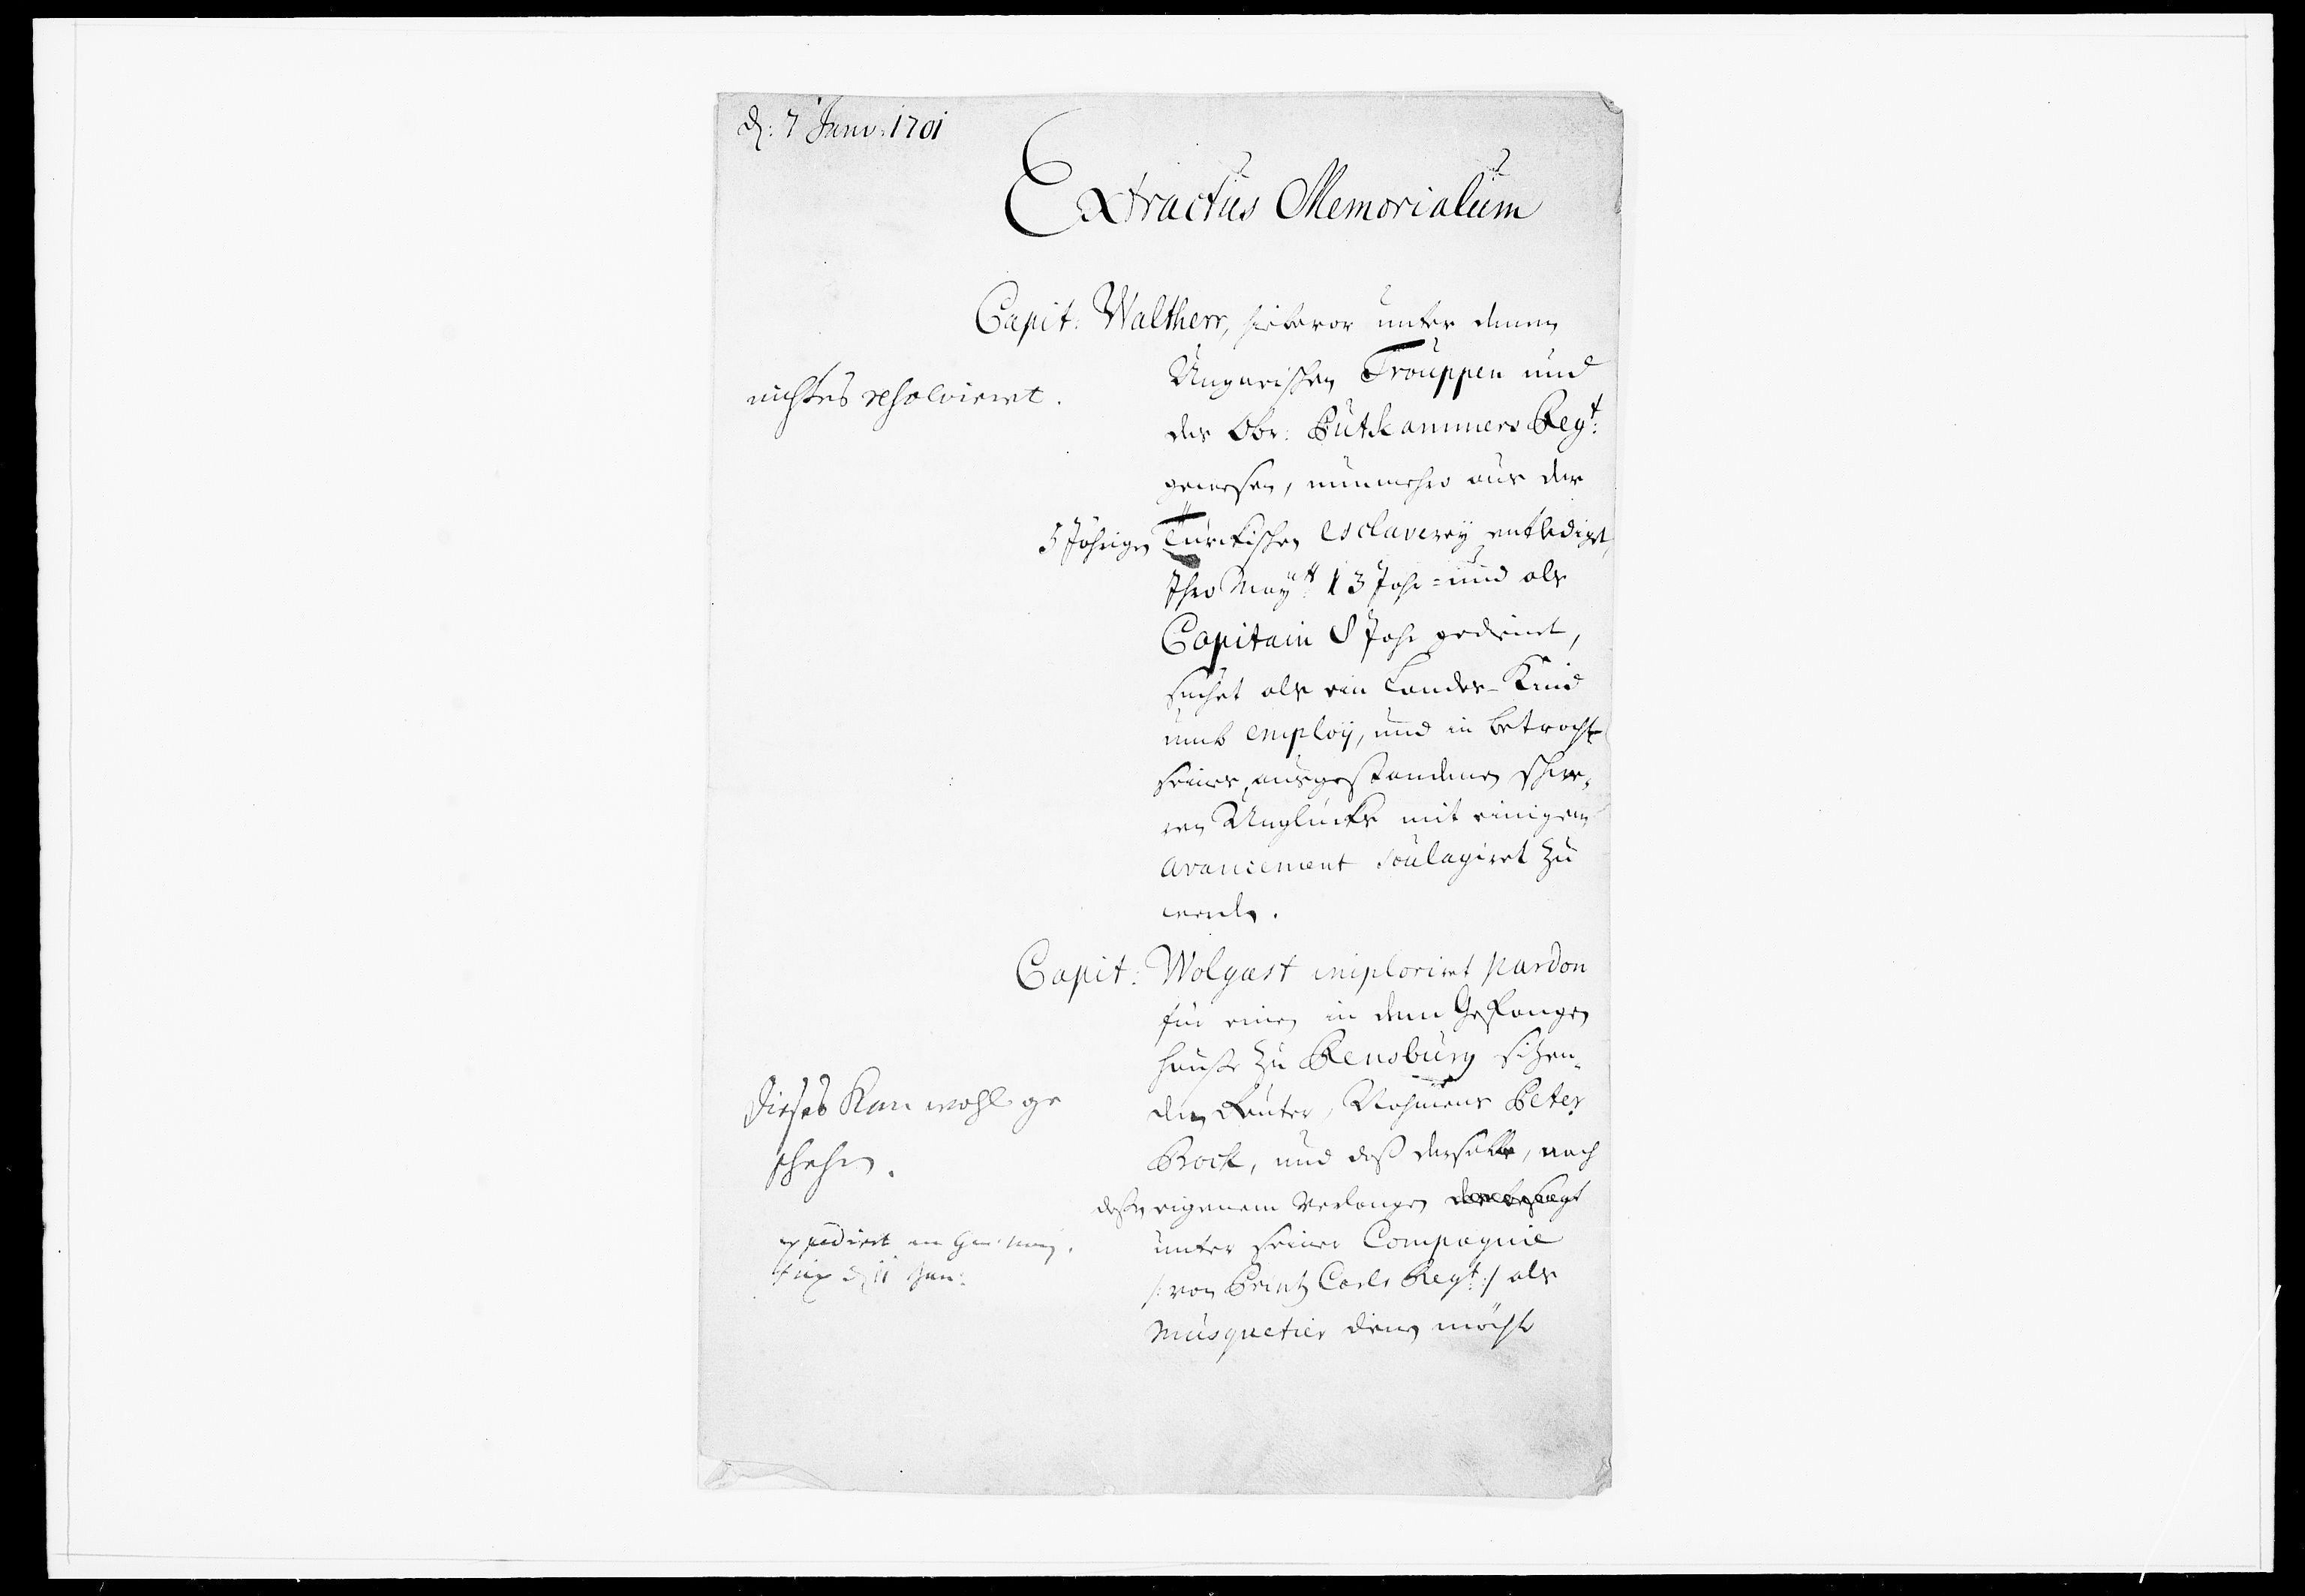 d: 7 Janu: 1701
Extractus Memorialium
Capit: Waltherr, hiebevor unter denen
Ungarischen Trouppen und
des Obr: Putkammers Regt:
gewesen, nunmehro aus der
5 Jährigen Türckischen esclaverey entledigt,
Ihro Maytt 13 Jahr = und als
Capitain 8 Jahr gedienet,
suchet als ein Landes-Kind
umb employ, und in betracht
seines ausgestandenen schwe-
ren Unglücks mit einigem
avancement soulagiret zu
werden.
nichtes resolvieret.
Capit: Wolgast imploriret pardon
für einen in dem Gefangen
hause zu Rensburg sitzen-
den Reuter, Nahmens Peter
Rock, und daß derselbe, nach
deßen eigenem Verlangen
unter seiner Compagnie
/: von Printz Carls Regt: :/ als
Musquetier dienen möchte
Dieses Kan wohl ge
schehen.
expediret an
d 11 Jan: